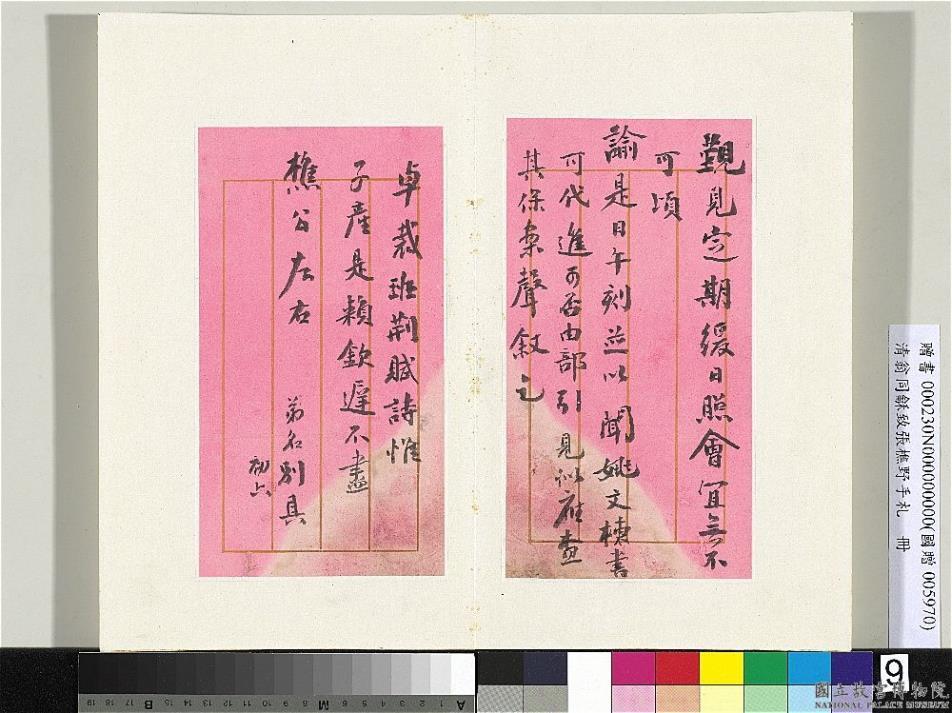 覲見定期緩日照會宜無不
可頃
諭是日午刻並以聞姚文棟書
可代進可否由部引見似應查
其保案聲敘之
卓裁班荆賦詩惟
子產是賴欽遲不盡
樵公左右
弟名別具
初六
贈書 000230N000000000(國贈 005970)
清翁同龢致張樵野手札 冊
9
國立故宮博物院
NATIONAL PALACE MUSEUM
A 1 2 3 4 5 6 M 8 9 10 11 12 13 14 15 B 17 18 19